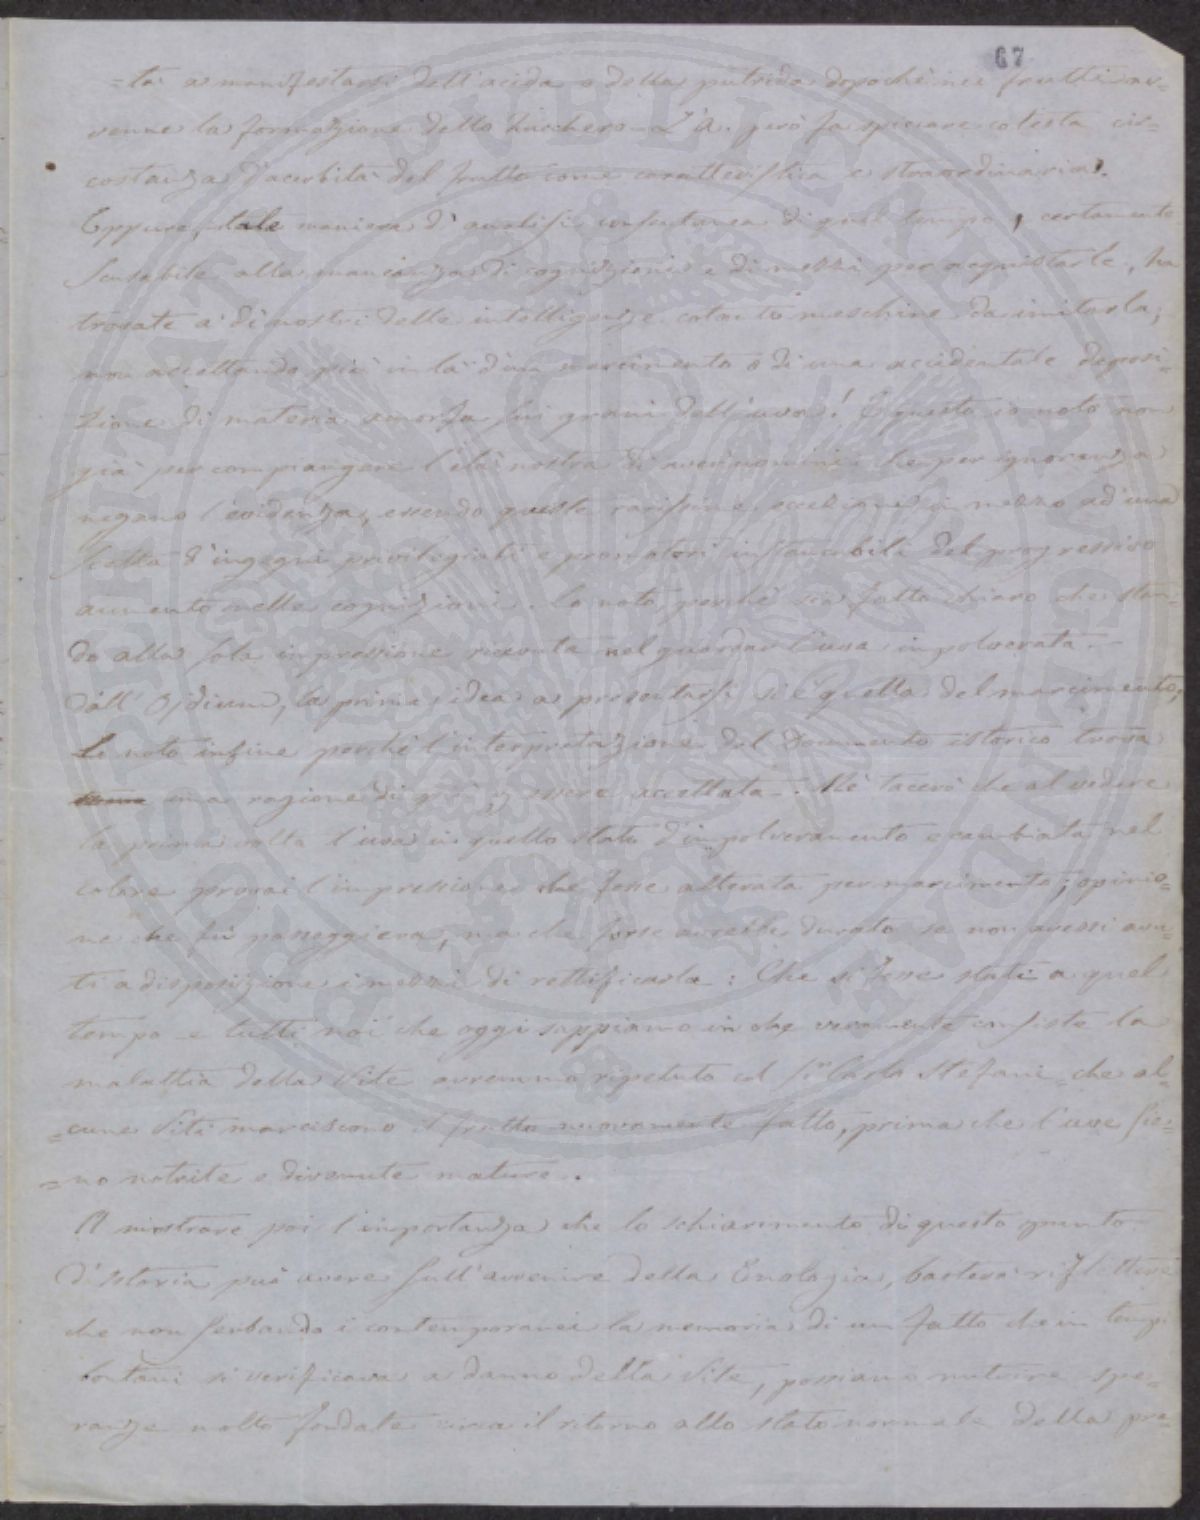 67
=ta a manifestarsi dell'acida o della putrida dopochè nei frutti av-
venne la formazione dello Zucchero - L'A. però fa spiccare cotesta cir=
costanza d'acerbità del frutto come caratteristica e straordinaria.
Eppure, tale maniera d'analisi infantanea di quel tempo, certamente
scusabile alla mancanza di cognizioni e di mezzi per acquistarle, ha
trovate a' dì nostri delle intelligenze cotanto meschine da imitarla,
non accettando più in là d'un marcimento o di una accidentale deposi=
zione di materia amorfa sui grani dell'uva! E questo io noto non
già per compiangere l'età nostra di aver uomini che per ignoranza
negano l'evidenza, essendo queste rarissime eccezioni in mezzo ad una
scelta d'ingegni privilegiati e promotori instancabili del progressivo
aumento nelle cognizioni. Lo noto, perchè sia fatto chiaro che stan=
do alla sola impressione ricevuta nel guardar l'uva impolverata
dall'Oidium, la prima idea a presentarsi si è quella del marcimento,
Lo noto infine perchè l'interpretazione del Documento istorico trova
una ragione di più per essere accettata. Nè tacerò che al vedere
la prima volta l'uva in quello stato d'impolveramento e cambiata nel
colore provai l'impressione che fosse alterata per marcimento; opinio=
ne che fù passeggiera, ma che forse avrebbe durato se non avessi avu=
ti a disposizione i mezzi di rettificarla: Che si fosse stati a quel
tempo e tutti noi che oggi sappiamo in che veramente consiste la
malattia della Vite avremmo ripetuto col Sr. Carlo Stefani = che al=
=cune Viti marciscono il frutto nuovamente fatto, prima che l'uve sie=
=no notrite e divenute mature.
A mostrare poi l'importanza che lo schiarimento di questo punto
d'istoria può avere sull'avvenire della Enologia, basterà riflettere
che non serbando i contemporanei la memoria di un fatto che in tempi
lontani si verificava a danno della Vite, possiamo nutrire spe=
ranze molto fondate circa il ritorno allo stato normale della pre=